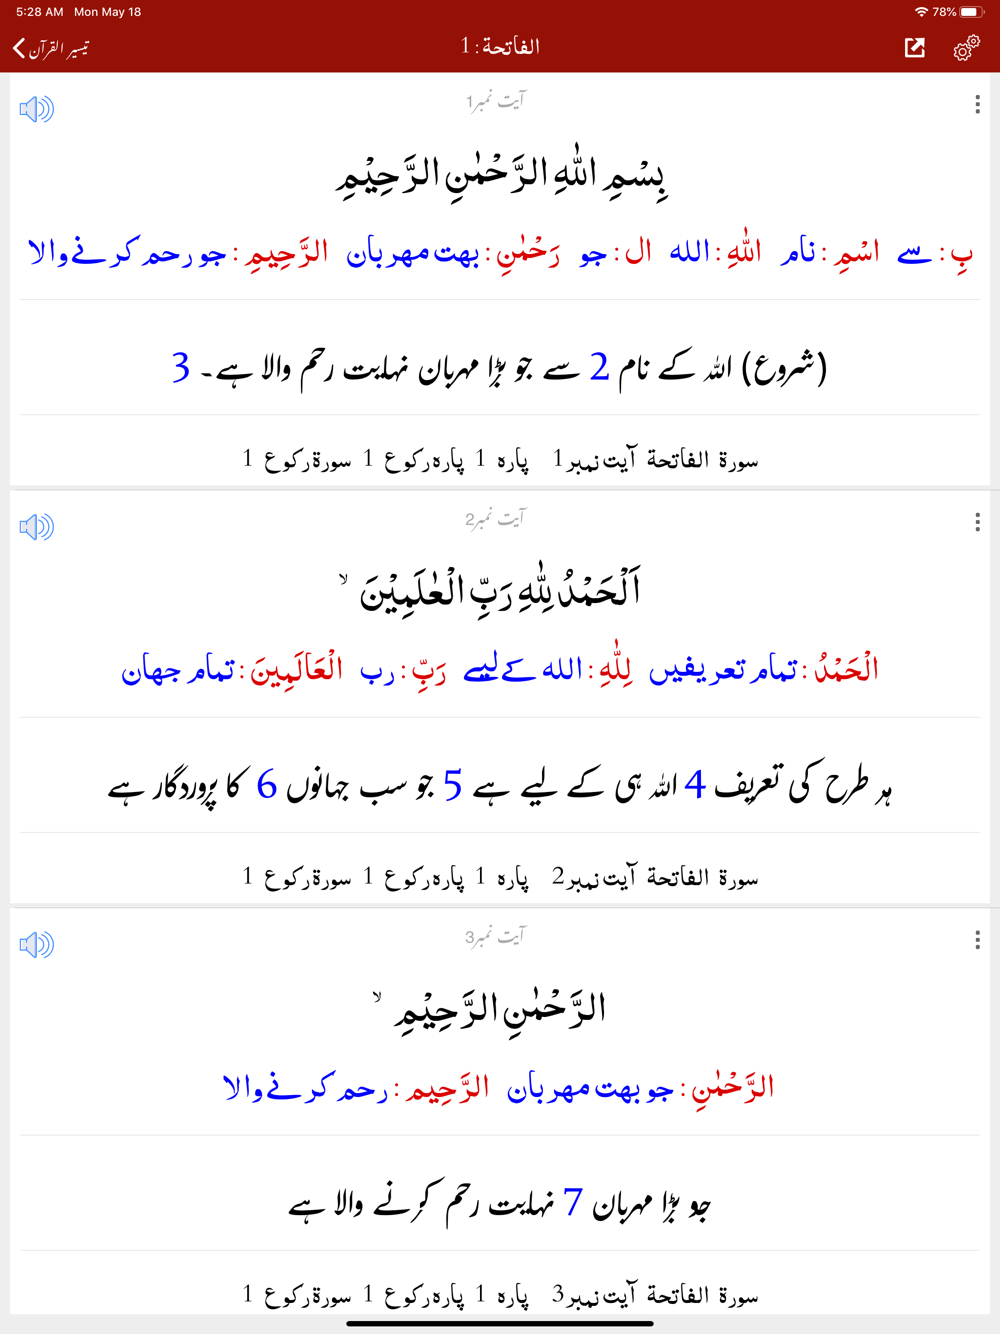 5:28 AM Mon May 18 78%
تیسیر القرآن الفاتحة : 1
آیت نمبر1
بِسْمِ اللّٰهِ الرَّحْمٰنِ الرَّحِیْمِ
بِ : سے اسْمِ : نام اللّٰهِ : الله ال : جو رَحْمٰنِ : بهت مهربان الرَّحِیمِ : جو رحم کرنے والا
(شروع) اللہ کے نام 2 سے جو بڑا مہربان نہایت رحم والا ہے۔ 3
سورۃ الفاتحة آیت نمبر 1 پارہ 1 پارہ رکوع 1 سورۃ رکوع 1
آیت نمبر2
اَلْحَمْدُ لِلّٰهِ رَبِّ الْعٰلَمِیْنَ ۙ
الْحَمْدُ : تمام تعریفیں لِلّٰهِ : الله کے لیے رَبِّ : رب الْعَالَمِینَ : تمام جهان
ہر طرح کی تعریف 4 اللہ ہی کے لیے ہے 5 جو سب جہانوں 6 کا پروردگار ہے
سورۃ الفاتحة آیت نمبر 2 پارہ 1 پارہ رکوع 1 سورۃ رکوع 1
آیت نمبر3
الرَّحْمٰنِ الرَّحِیْمِ ۙ
الرَّحْمٰنِ : جو بهت مهربان الرَّحِیم : رحم کرنے والا
جو بڑا مہربان 7 نہایت رحم کرنے والا ہے
سورۃ الفاتحة آیت نمبر 3 پارہ 1 پارہ رکوع 1 سورۃ رکوع 1